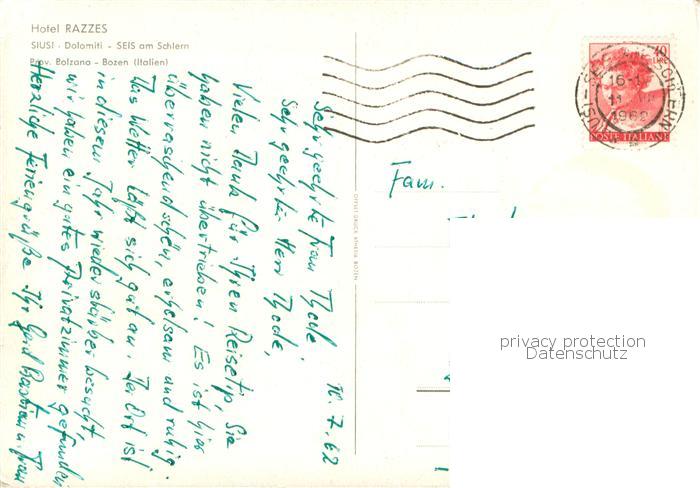 Hotel RAZZES
SIUSI - Dolomiti - SEIS am Schlern
Prov. Bolzano - Bozen (Italien)
10. 7. 62
Sehr geehrte Frau Thode!
Sehr geehrter Herr Thode,
Vielen Dank für Ihren Reisetip, Sie
haben nicht übertrieben! Es ist hier
überraschend schön, erholsam und ruhig.
Das Wetter läßt sich gut an. Der Ort ist
in diesem Jahr wieder stärker besucht,
wir haben ein gutes Privatzimmer gefunden
Herzliche Feriengrüße Ihr Gerd Bastian u. Frau
Fam.
OFFSET DRUCK ATHESIA BOZEN
40
LIRE
16-1
1962
POSTE ITALIANE
privacy protection
Datenschutz